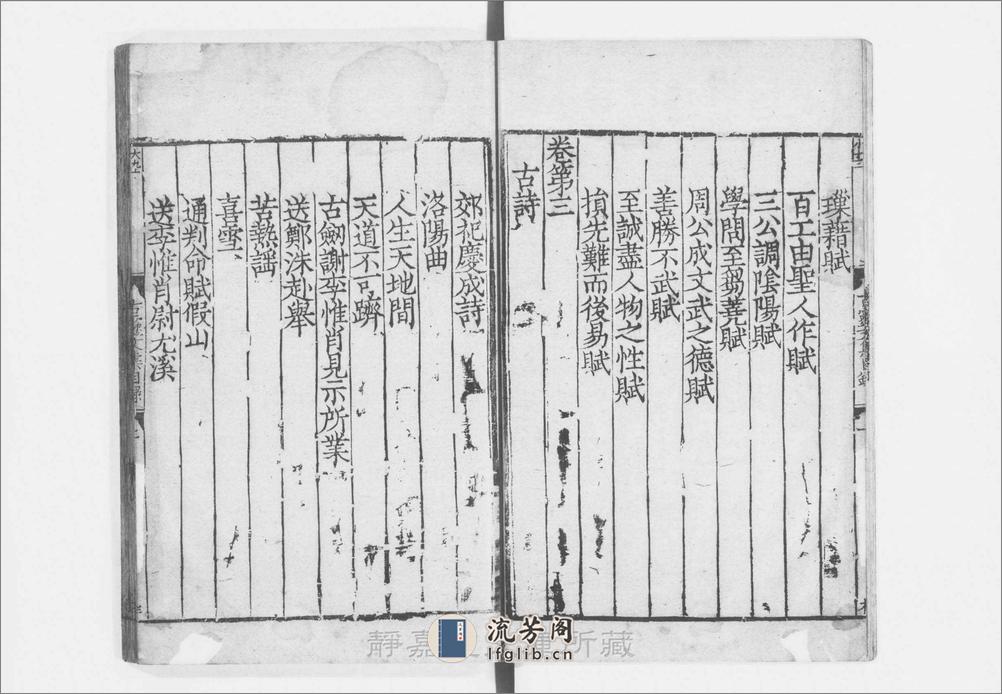 璞藉賦
百工由聖人作賦
三公調陰陽賦
學問至芻蕘賦
周公成文武之德賦
善勝不武賦
至誠盡人物之性賦
損先難而後易賦
卷第三
古詩
郊祀慶成詩
洛陽曲
人生天地間
天道不可躋
古劒謝李惟肖見示所業
送鄭洙赴舉
苦熱謡
喜雪
通判命賦假山
送李惟肖尉尤溪
靜嘉
所藏
流芳阁
lfglib.cn